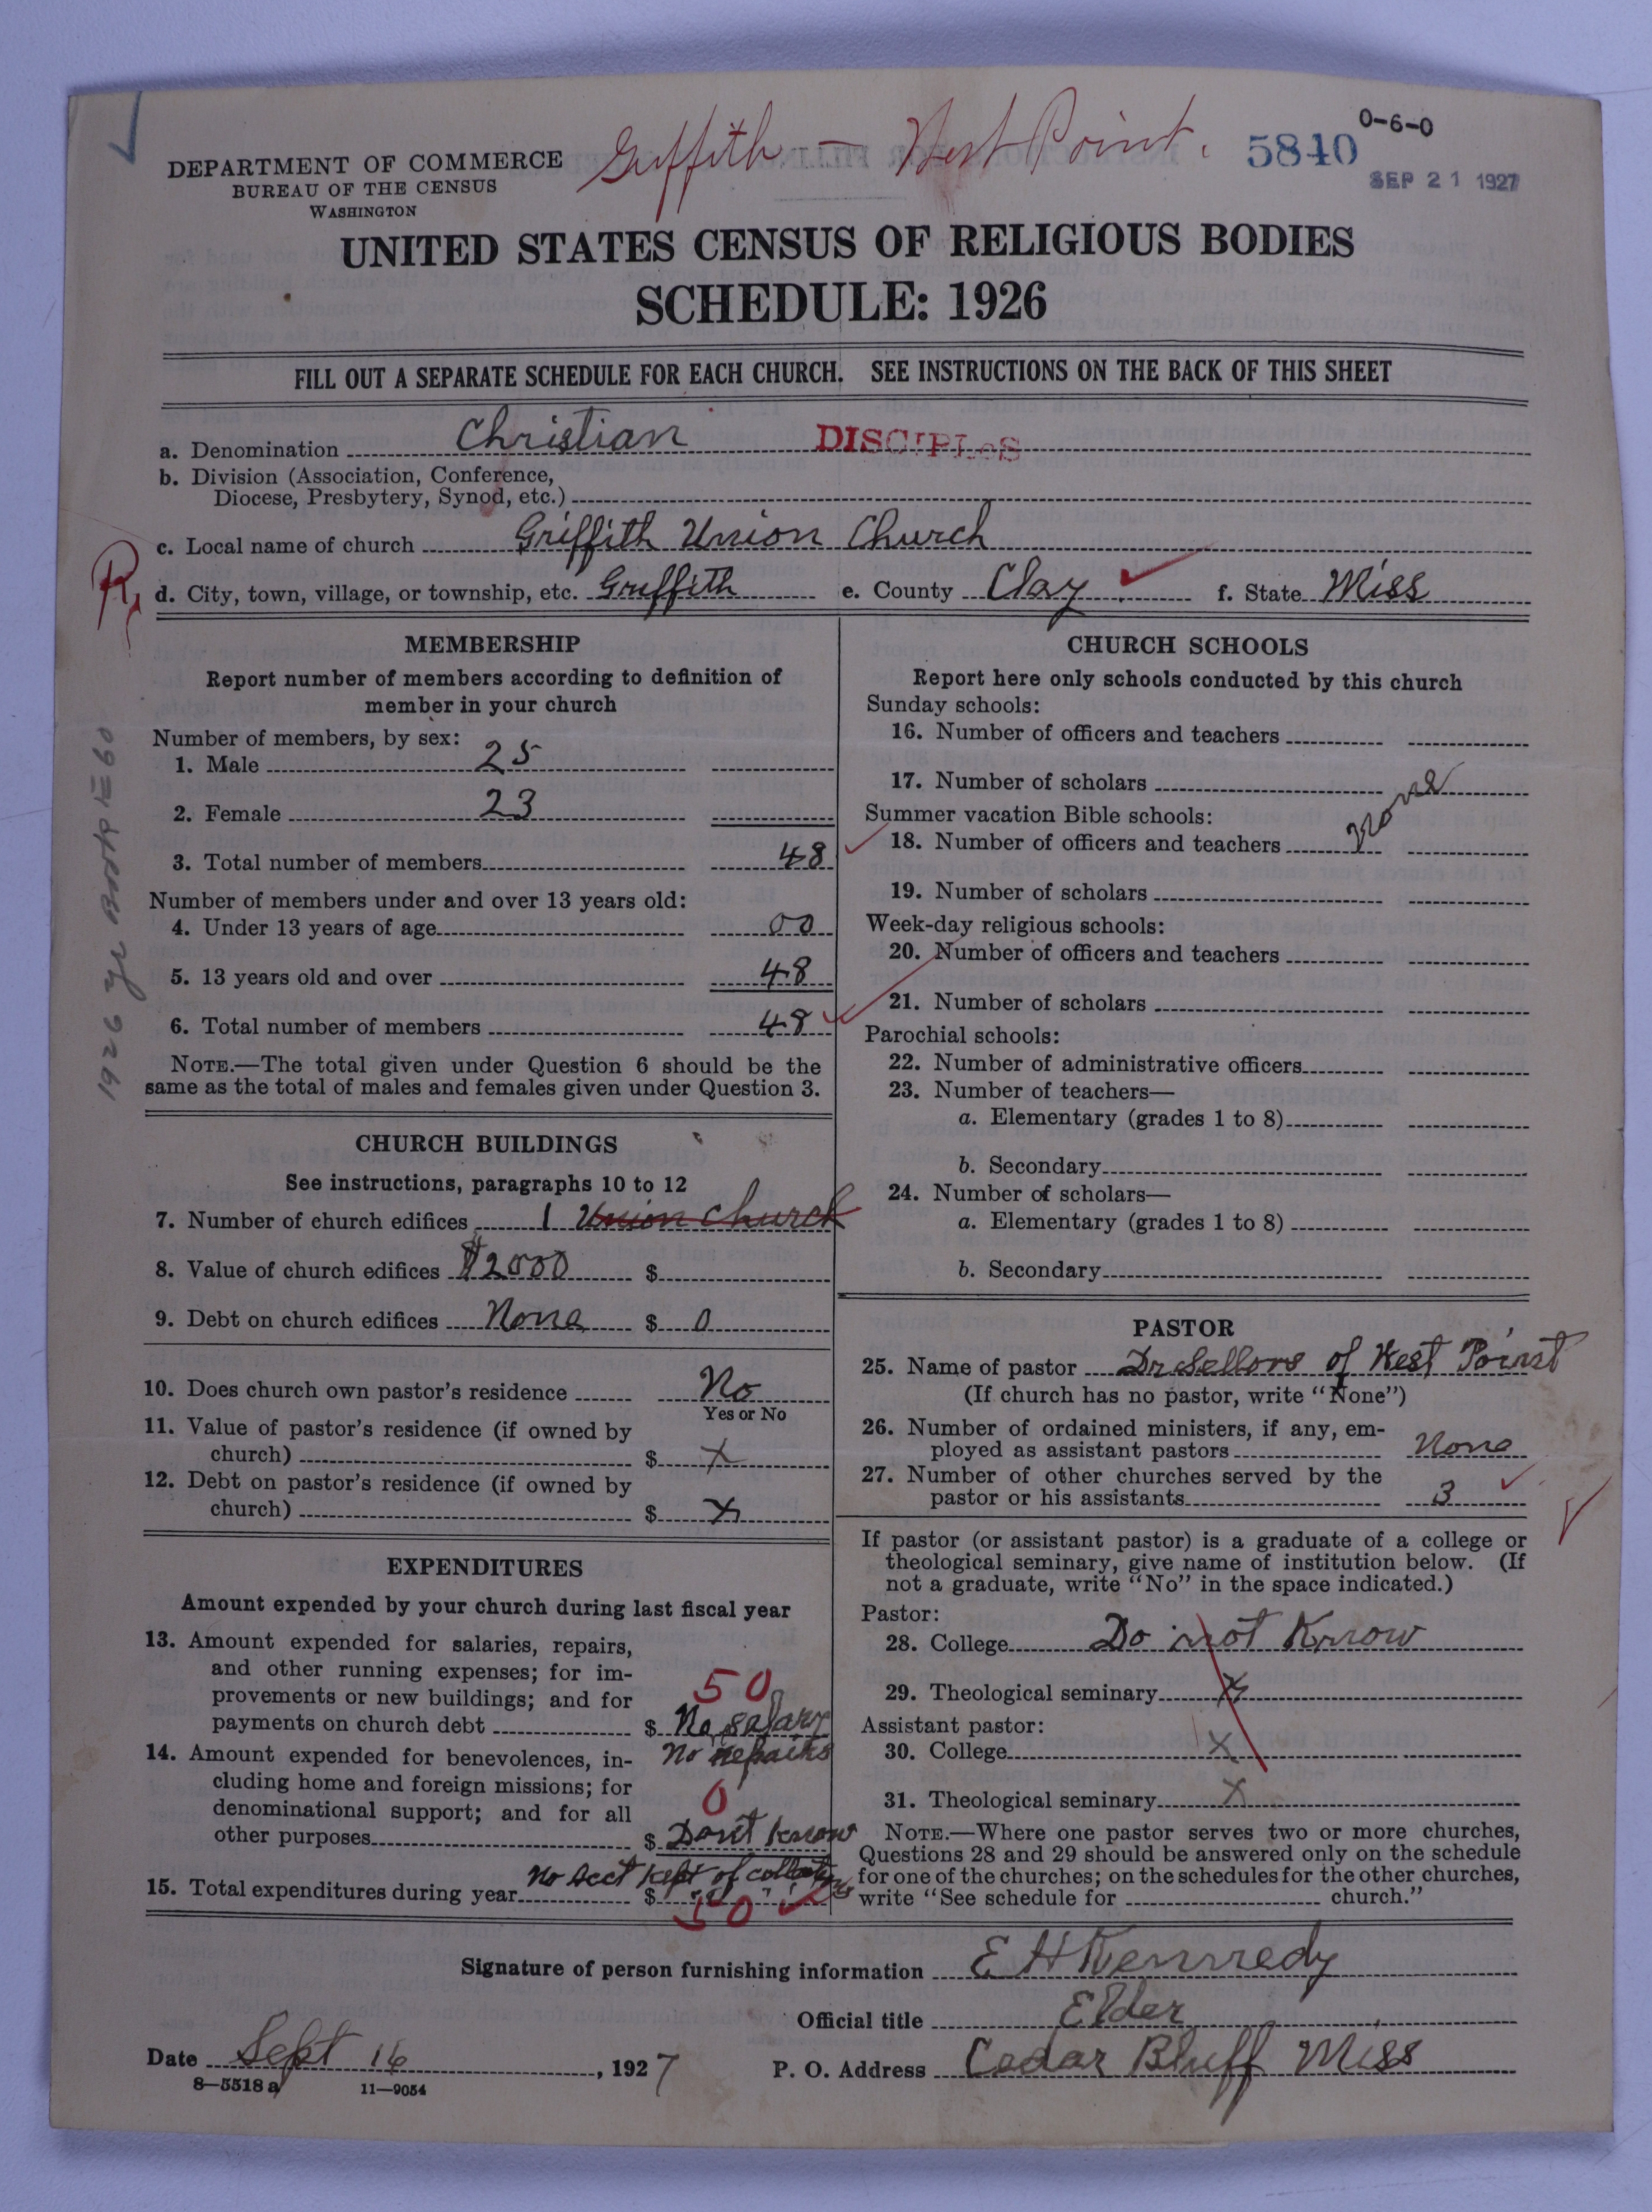 Griffith - West Point.
5840
0-6-0
SEP 21 1927
DEPARTMENT OF COMMERCE
BUREAU OF THE CENSUS
WASHINGTON
UNITED STATES CENSUS OF RELIGIOUS BODIES
SCHEDULE: 1926
FILL OUT A SEPARATE SCHEDULE FOR EACH CHURCH. SEE INSTRUCTIONS ON THE BACK OF THIS SHEET
a. Denomination Christian DISCIPLES
b. Division (Association, Conference,
Diocese, Presbytery, Synod, etc.)
c. Local name of church Griffith Union Church
R
d. City, town, village, or township, etc. Griffith e. County Clay f. State Miss
1926 yr Book
60
MEMBERSHIP
Report number of members according to definition of
member in your church
Number of members, by sex:
1. Male 25
2. Female 23
3. Total number of members 48
Number of members under and over 13 years old:
4. Under 13 years of age 00
5. 13 years old and over 48
6. Total number of members 48
NOTE.—The total given under Question 6 should be the
same as the total of males and females given under Question 3.
CHURCH BUILDINGS
See instructions, paragraphs 10 to 12
7. Number of church edifices 1 Union Church
8. Value of church edifices $2000 $
9. Debt on church edifices None $ 0
10. Does church own pastor's residence No
Yes or No
11. Value of pastor's residence (if owned by
church) $ X
12. Debt on pastor's residence (if owned by
church) $ X
EXPENDITURES
Amount expended by your church during last fiscal year
13. Amount expended for salaries, repairs,
and other running expenses; for im-
provements or new buildings; and for 50
payments on church debt $ No salary
14. Amount expended for benevolences, in- No repairs
cluding home and foreign missions; for
denominational support; and for all 0
other purposes $ Dont know
No acct kept of
15. Total expenditures during year $ 50
CHURCH SCHOOLS
Report here only schools conducted by this church
Sunday schools:
16. Number of officers and teachers
17. Number of scholars
Summer vacation Bible schools: None
18. Number of officers and teachers
19. Number of scholars
Week-day religious schools:
20. Number of officers and teachers
21. Number of scholars
Parochial schools:
22. Number of administrative officers
23. Number of teachers—
a. Elementary (grades 1 to 8)
b. Secondary
24. Number of scholars—
a. Elementary (grades 1 to 8)
b. Secondary
PASTOR
25. Name of pastor Dr Sellors of West Point
(If church has no pastor, write "None")
26. Number of ordained ministers, if any, em-
ployed as assistant pastors None
27. Number of other churches served by the
pastor or his assistants 3
If pastor (or assistant pastor) is a graduate of a college or
theological seminary, give name of institution below. (If
not a graduate, write "No" in the space indicated.)
Pastor:
28. College Do not Know
29. Theological seminary X
Assistant pastor:
30. College X
31. Theological seminary X
NOTE.—Where one pastor serves two or more churches,
Questions 28 and 29 should be answered only on the schedule
for one of the churches; on the schedules for the other churches,
write "See schedule for church."
Signature of person furnishing information E H Kennedy
Official title Elder
Date Sept 16, 1927 P. O. Address Cedar Bluff Miss
8—5518 a 11—9054